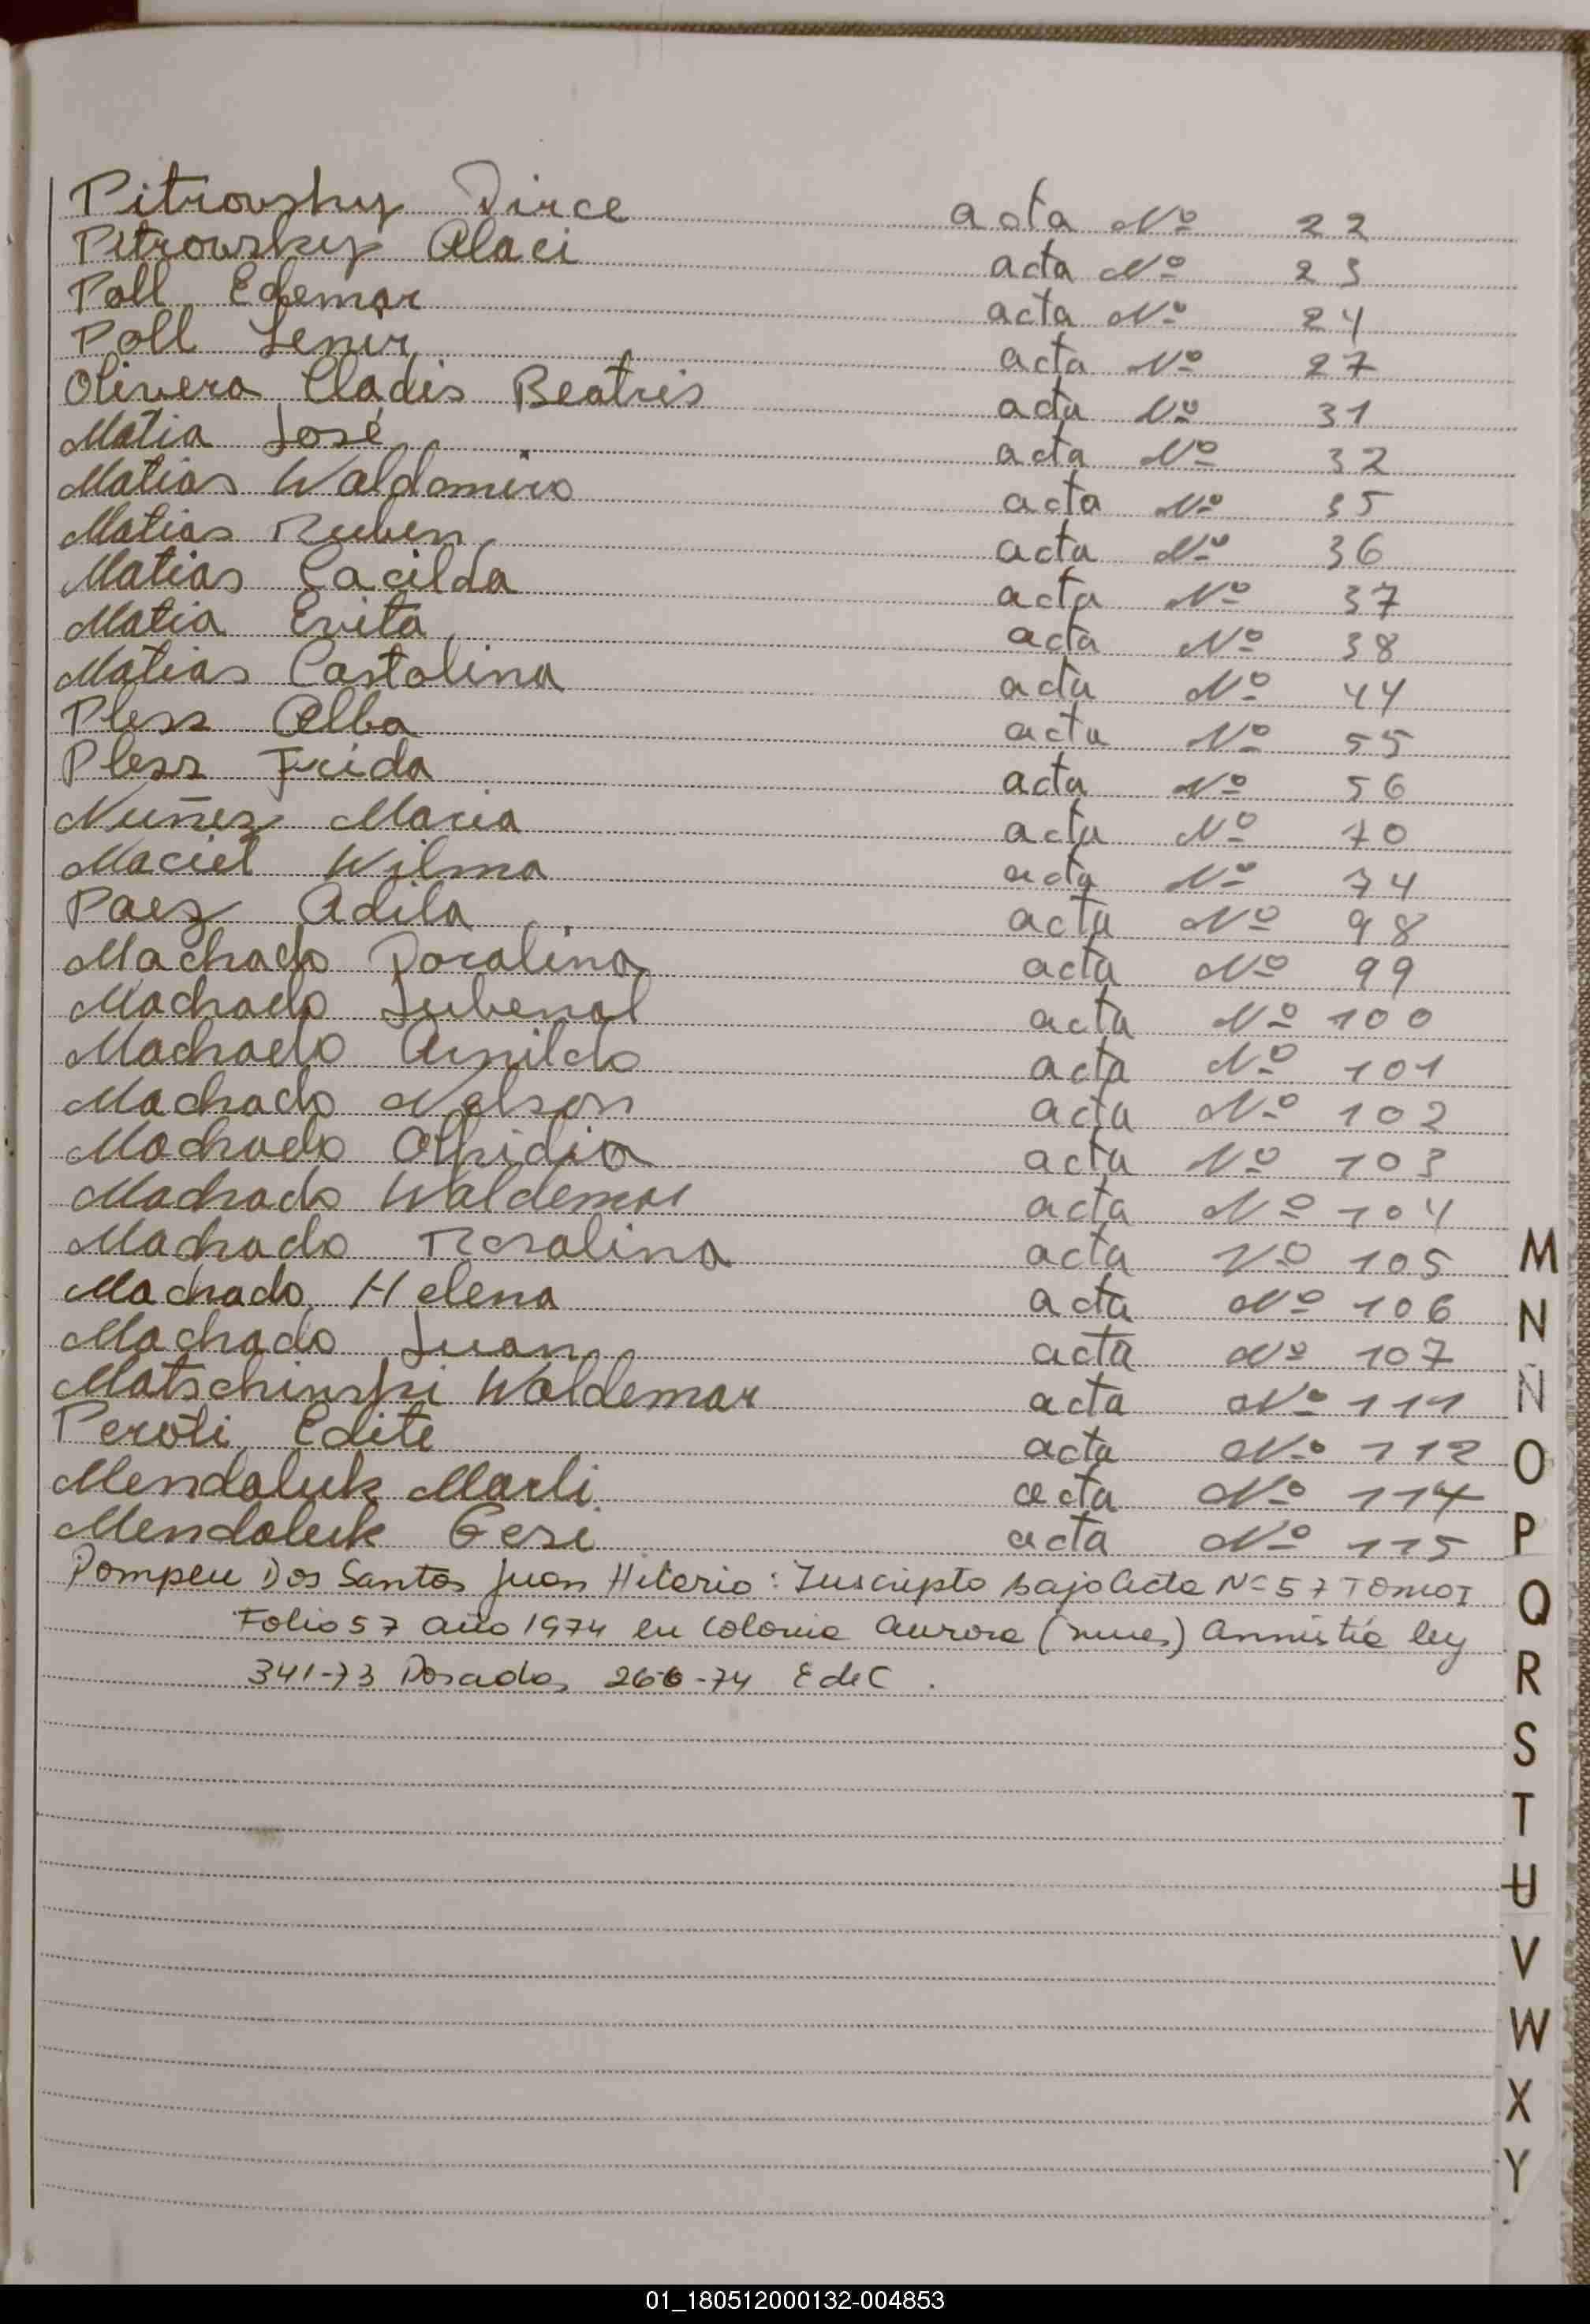 Pitrowsky Dirce acta Nº 22
Pitrowsky Alaci acta Nº 23
Poll Edemar acta Nº 24
Poll Lenir acta Nº 27
Olivera Cladis Beatris acta Nº 31
Matia José acta Nº 32
Matias Waldomiro acta Nº 35
Matias Ruben acta Nº 36
Matias Cacilda acta Nº 37
Matia Evita acta Nº 38
Matias Castolina acta Nº 44
Pless Alba acta Nº 55
Pless Frida acta Nº 56
Nuñez Maria acta Nº 70
Maciel Wilma acta Nº 74
Paez Adila acta Nº 98
Machado Doralina acta Nº 99
Machado Jubenal acta Nº 100
Machado Arnildo acta Nº 101
Machado Nelson acta Nº 102
Machado acta Nº 103
Machado Waldemar acta Nº 104
Machado Rosalina acta Nº 105
Machado Helena acta Nº 106
Machado Juan acta Nº 107
Matschinski Waldemar acta Nº 111
Peroti Edite acta Nº 112
Mendaluk Marli acta Nº 114
Mendaluk Gesi acta Nº 115
Pompeu Dos Santos Juan Hilario: Inscripto bajo Acta Nº 57 Tomo I
Folio 57 año 1974 en Colonia Aurora (mnes) Amnistia ley
341-73 Posadas 26-6-74 E de C.
M
N
Ñ
O
P
Q
R
S
T
U
V
W
X
Y
01_180512000132-004853